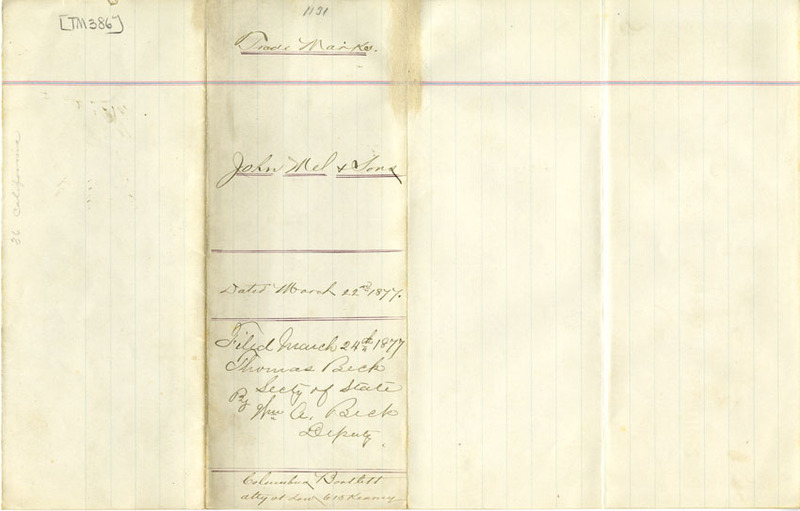 [TM386]
1131
Trade Marks.
John Mel & Sons
Dated March 22nd 1877.
Filed March 24th 1877
Thomas Beck
Secty of State
By Wm A. Beck
Deputy.
Columbus Bartlett
atty at Law 610 Kearny
36 California